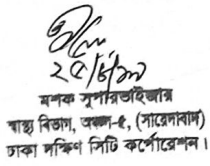 ২৫/৮/২০
মশক সুপারভাইজার
স্বাস্থ্য বিভাগ, অঞ্চল-৫, (সায়েদাবাদ)
ঢাকা দক্ষিণ সিটি কর্পোরেশন।